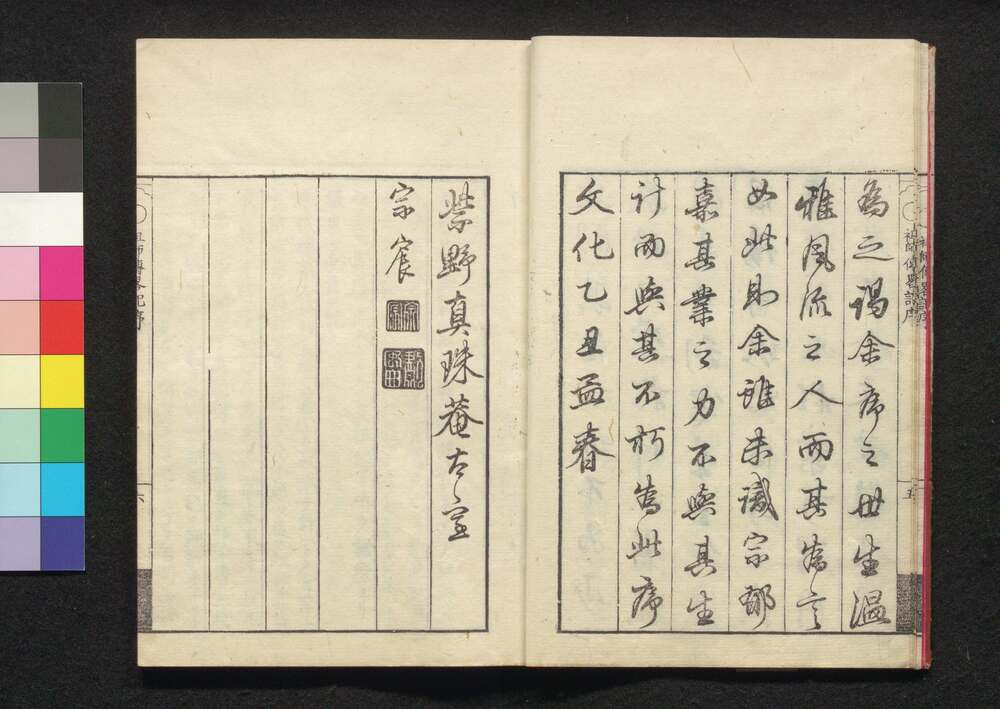 為之謁余序之毋生温
雅風流之人而其為言
如此助余雖未識宗郁
嘉其業之力不與其生
計而與其不朽為此序
文化乙丑孟春
紫野真珠菴古室
宗宸